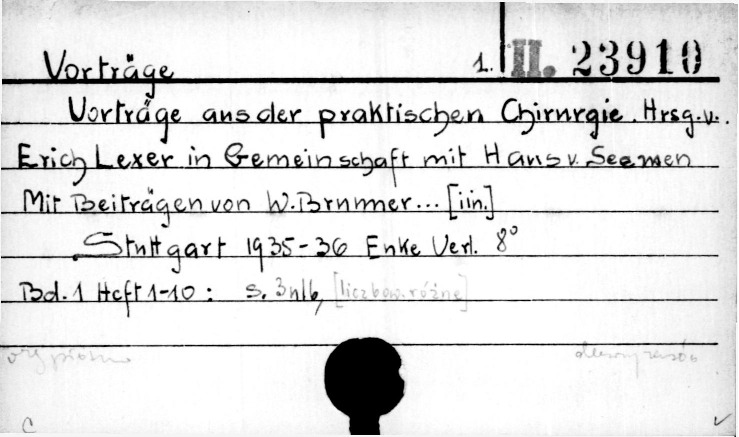 Vorträge 1. II. 23910
Vorträge aus der praktischen Chirurgie. Hrsg. v.
Erich Lexer in Gemeinschaft mit Hans v. Seemen
Mit Beiträgen von W. Brunner... [iin.]
Stuttgart 1935-36 Enke Verl. 8°
Bd. 1 Heft 1-10: s. 3nlb, [liczbow. różne]
C